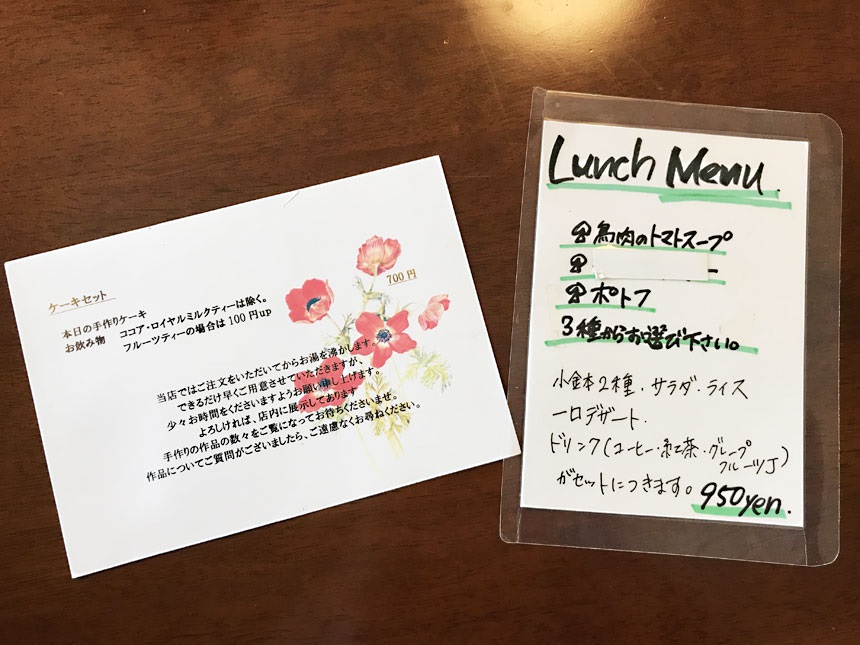 ケーキセット
700円
本日の手作りケーキ
お飲み物 ココア・ロイヤルミルクティーは除く。
フルーツティーの場合は100円up
当店ではご注文をいただいてからお湯を沸かします。
できるだけ早くご用意させていただきますが、
少々お時間をくださいますようお願い申し上げます。
よろしければ、店内に展示してあります
手作りの作品の数々をご覧になってお待ちくださいませ。
作品についてご質問がございましたら、ご遠慮なくお尋ねください。
Lunch Menu.
鳥肉のトマトスープ
ー
ポトフ
3種からお選び下さい。
小鉢2種・サラダ・ライス
一口デザート・
ドリンク(コーヒー・紅茶・グレープ
フルーツJ)
がセットにつきます。
950yen.